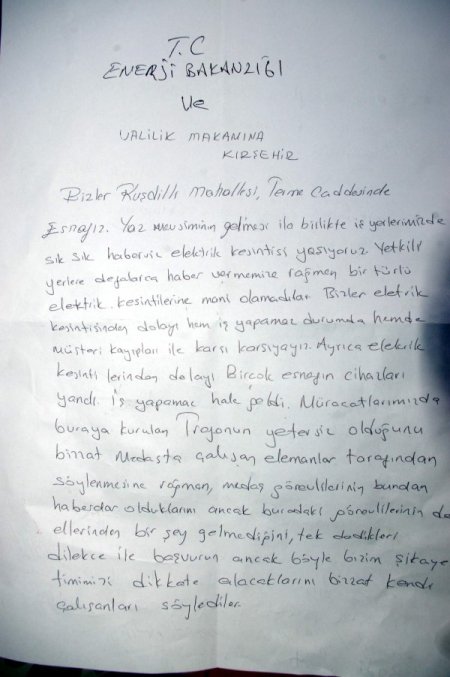 T.C
ENERJİ BAKANLIĞI
ve
VALİLİK MAKAMINA
KIRŞEHİR
Bizler Kuşdilli Mahallesi, Terme Caddesinde
Esnafız. Yaz mevsiminin gelmesi ile birlikte iş yerlerimizde
sık sık habersiz elektrik kesintisi yaşıyoruz Yetkili
yerlere defalarca haber vermemize rağmen bir türlü
elektrik kesintilerine mani olamadılar Bizler eletrik
kesintisinden dolayı hem iş yapamaz durumda hemde
müşteri kayıpları ile karşı karşıyayız. Ayrıca elektrik
kesinti lerinden dolayı Bircok esnafın cihazları
yandı. İş yapamaz hale geldi. Müracatlarımızda
buraya kurulan Trafonun yetersiz olduğunu
bizzat Medaşta çalışan elemanlar tarafından
söylenmesine rağmen, medaş görevlilerinin bundan
haberdar olduklarını ancak buradaki görevlilerinin de
ellerinden bir şey gelmediğini, tek dedikleri
dilekce ile başvurun ancak böyle bizim şikaye
timinizi dikkate alacaklarını bizzat kendi
çalışanları söylediler.